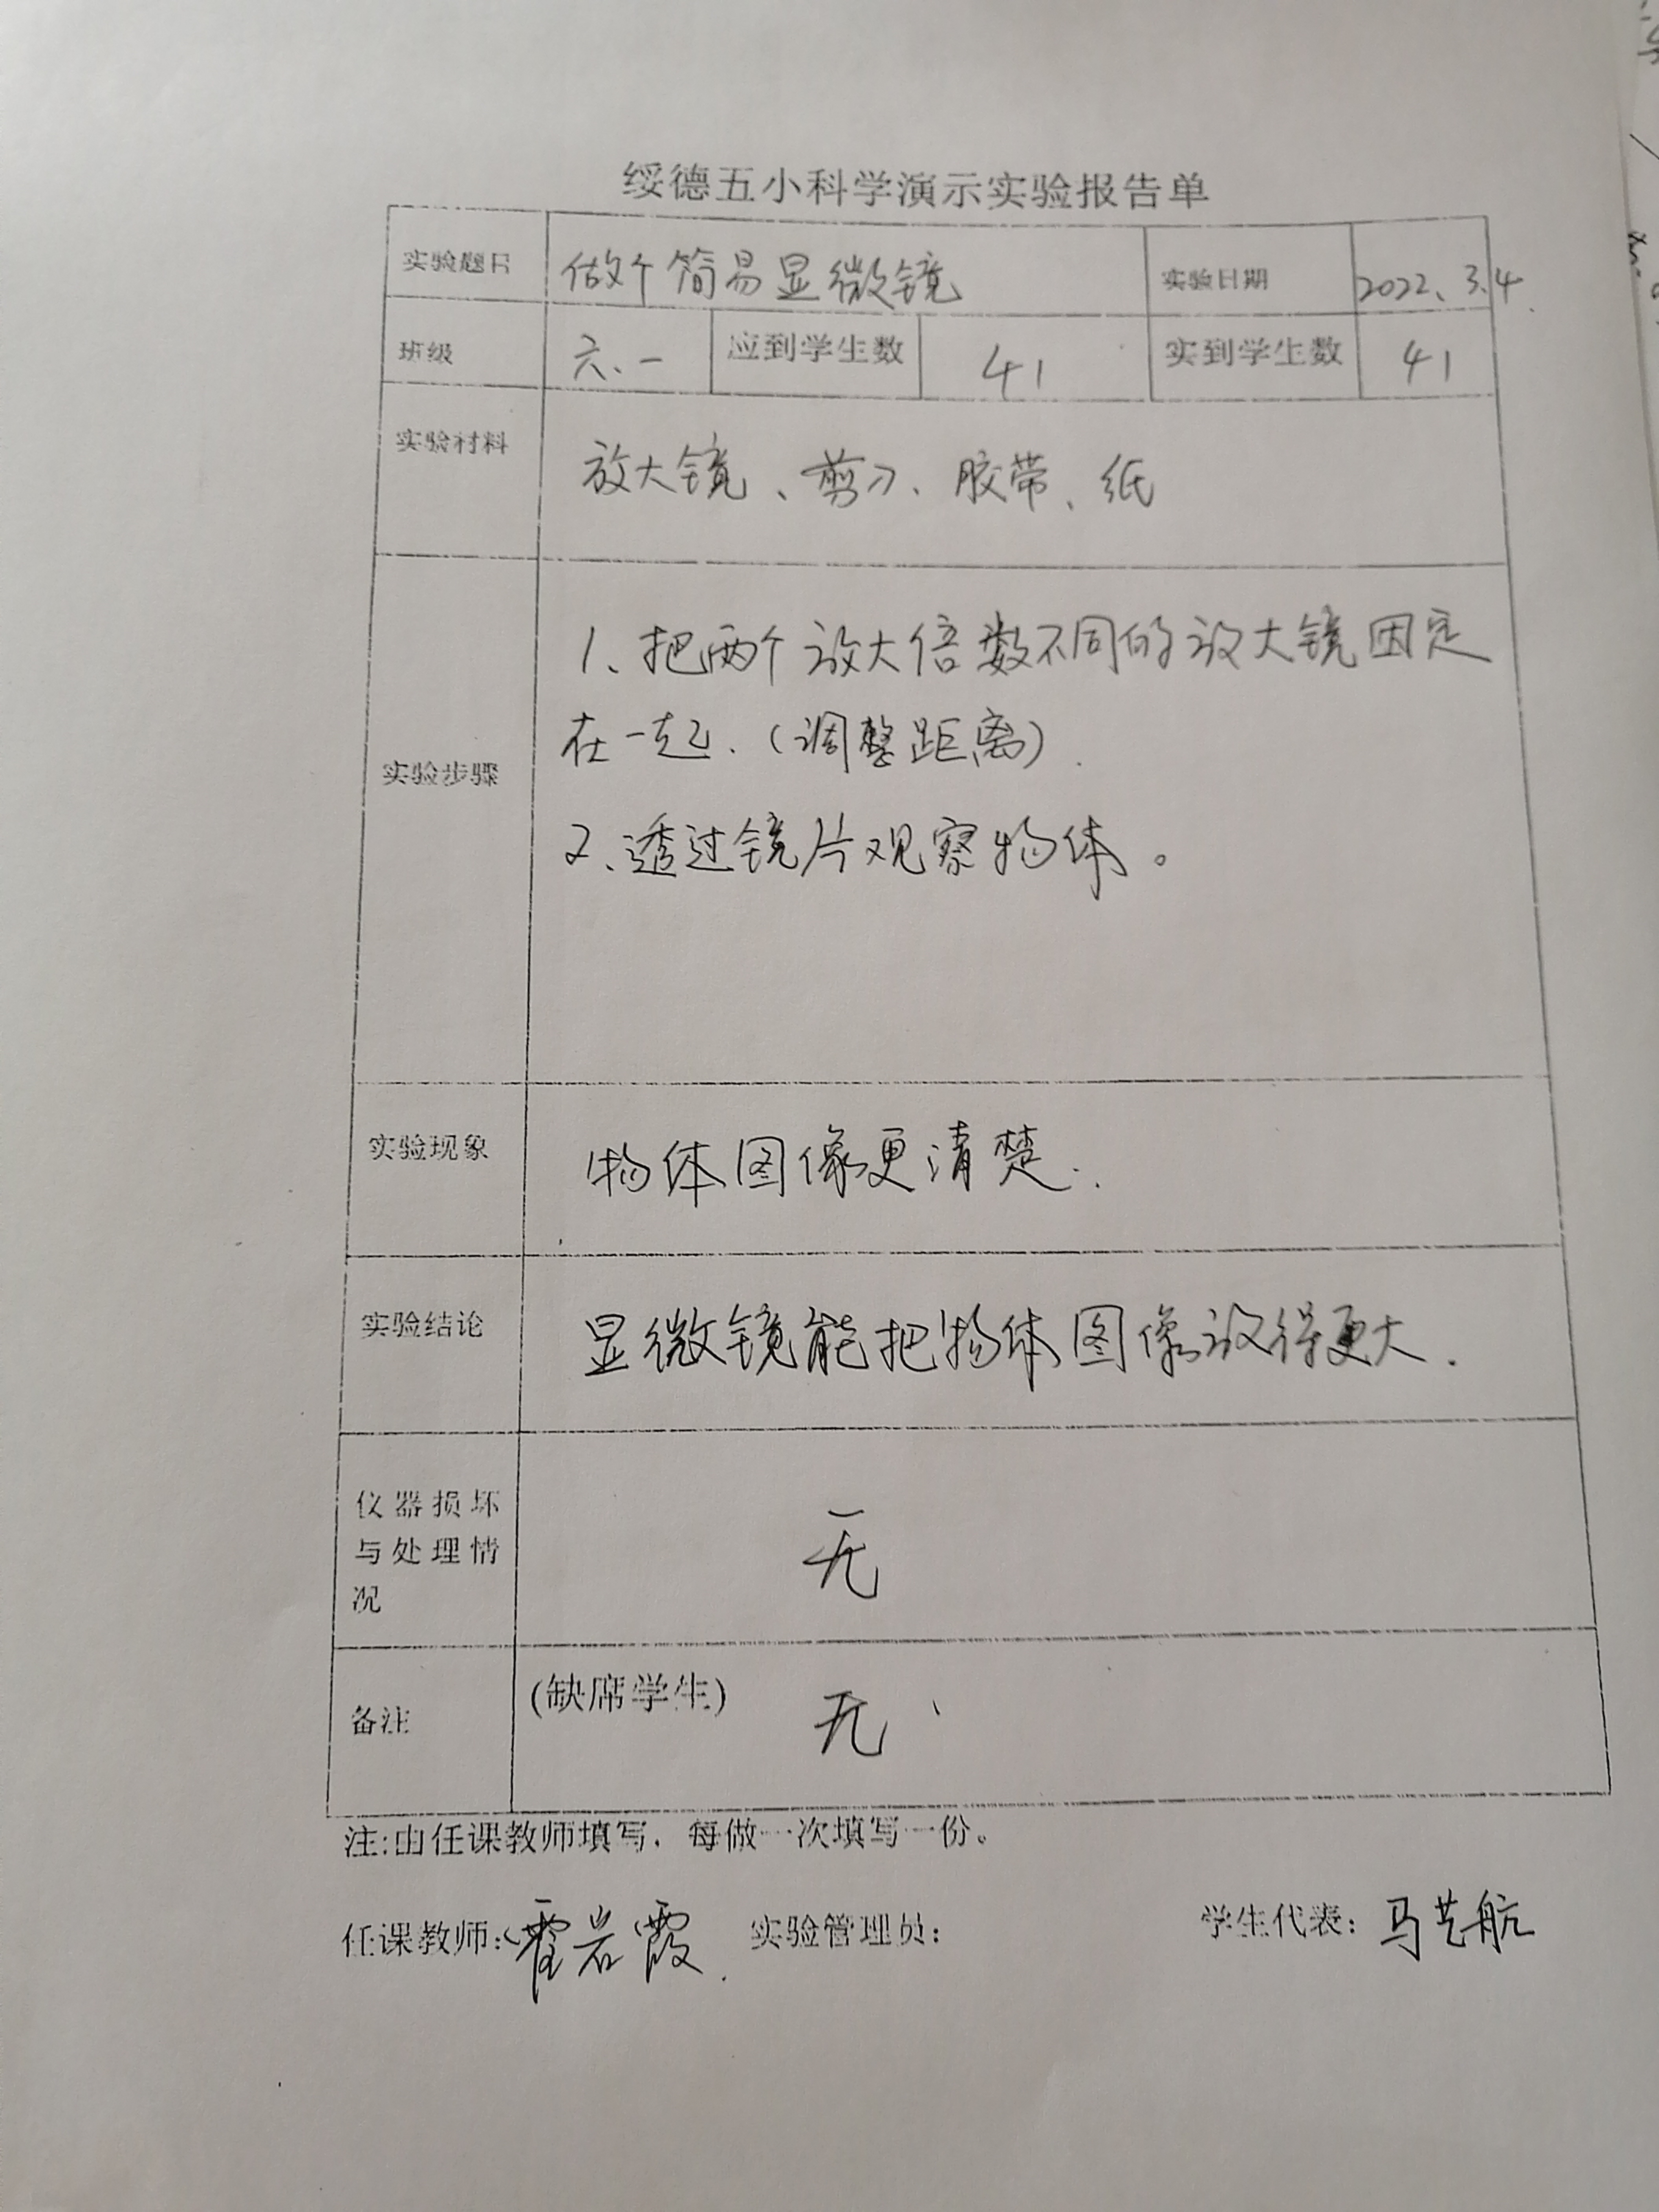 绥德五小科学演示实验报告单
实验题目 做个简易显微镜 实验日期 2022、3.4.
班级 六、一 应到学生数 41 实到学生数 41
实验材料 放大镜、剪刀、胶带、纸
1、把两个放大倍数不同的放大镜固定
在一起.(调整距离).
实验步骤
2、透过镜片观察物体。
实验现象 物体图像更清楚.
实验结论 显微镜能把物体图像放得更大.
仪器损坏
与处理情 无
况
备注 (缺席学生) 无、
注:由任课教师填写，每做一次填写一份。
任课教师:霍岩霞. 实验管理员: 学生代表: 马艺航